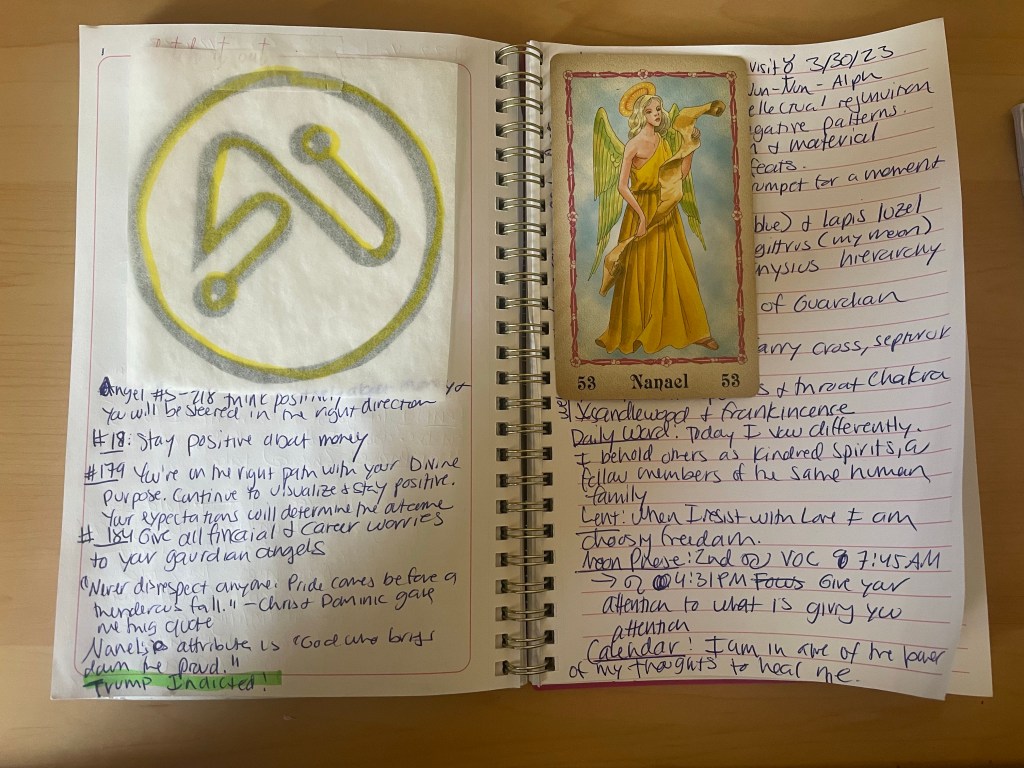 Angel #s-218 think positively
you will be steered in the right direction
#18: Stay positive about money
#179 You're on the right path with your Divine
purpose. Continue to visualize & stay positive.
Your expectations will determine the outcome
# 184 Give all financial & career worries
to your gaurdian angels
"Never disrespect anyone. Pride comes before a
thunderous fall." - Christ Dominic gave
me this quote
attribute is "God who brings
down the Proud."
Trump Indicted!
53 Nanael 53
visit 8 3/30/23
Nun-Nun-Alph
negative patterns.
& material
trumpet for a moment
blue) & lapis luzel
(my moon)
hierarchy
of Guardian
cross,
& throat Chakra
sandlewood & Frankincence
Daily Word: Today I view differently.
I behold others as kindred spirits, as
fellow members of the same human
family
Lent: When I resist with Love I am
choosing freedom.
Moon Phase: 2nd VOC 7:45 AM
→ ♌ 4:31PM Focus Give your
attention to what is giving you
attention
Calendar: I am in awe of the power
of my thoughts to heal me.